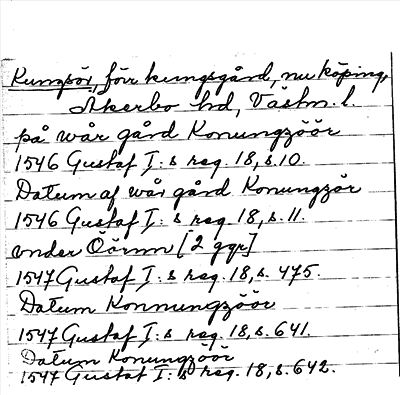 Kungsör, förr kungsgård, nu köping,
Åkerbo hd, Västm. l.
på wår gård Konungzöör
1546 Gustaf I:s reg. 18, s. 10.
Datum af wår gård Konungzör
1546 Gustaf I:s reg. 18, s. 11.
vnder Öörnn [2 ggr]
1547 Gustaf I:s reg. 18, s. 475.
Datum Konnungzöör
1547 Gustaf I:s reg. 18, s. 641.
Datum Konungzöör
1547 Gustaf I:s reg. 18, s. 642.